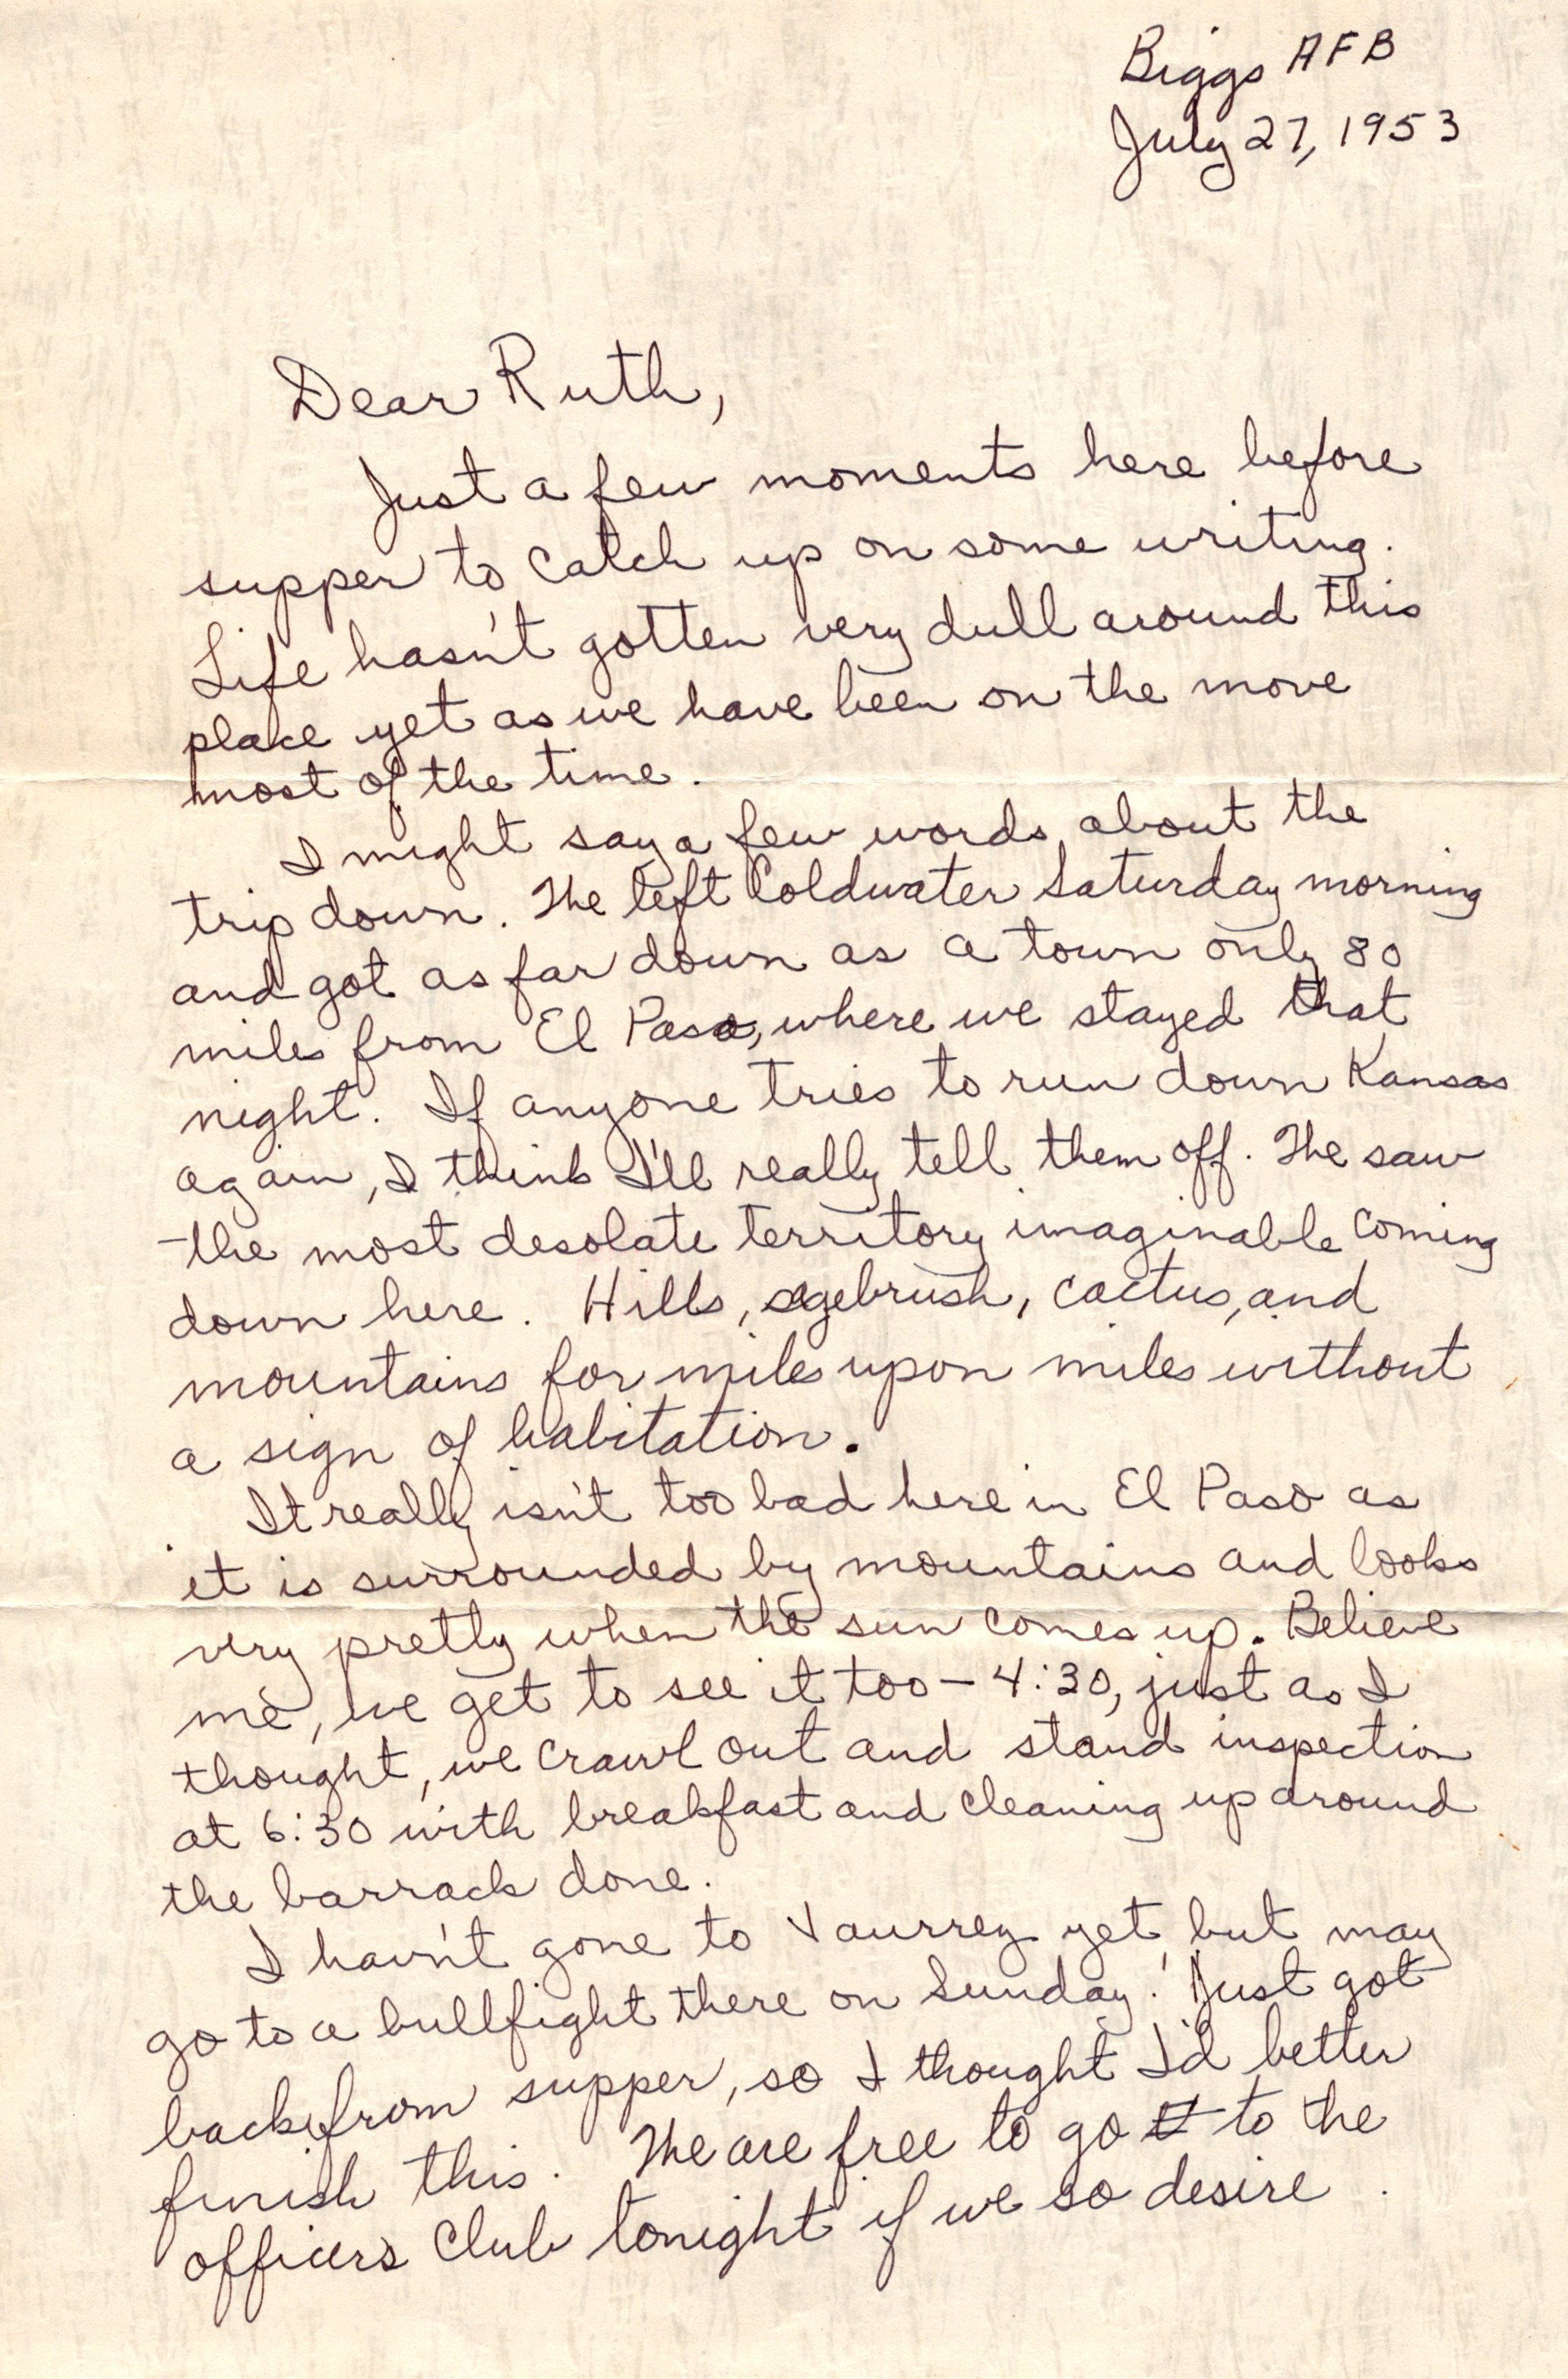 Biggs AFB
July 27, 1953
Dear Ruth,
Just a few moments here before
supper to catch up on some writing.
Life hasn't gotten very dull around this
place yet as we have been on the move
most of the time.
I might say a few words about the
trip down. We left Coldwater Saturday morning
and got as far down as a town only 80
miles from El Paso, where we stayed that
night. If anyone tries to run down Kansas
again, I think I'll really tell them off. We saw
the most desolate territory imaginable coming
down here. Hills, sagebrush, cactus, and
mountains for miles upon miles without
a sign of habitation.
It really isn't too bad here in El Paso as
it is surrounded by mountains and looks
very pretty when the sun comes up. Believe
me, we get to see it too – 4:30, just as I
thought, we crawl out and stand inspection
at 6:30 with breakfast and cleaning up around
the barrack done.
I havn't gone to yet but may
go to a bullfight there on Sunday. Just got
back from supper, so I thought I'd better
finish this. We are free to go to the
officers Club tonight if we so desire.